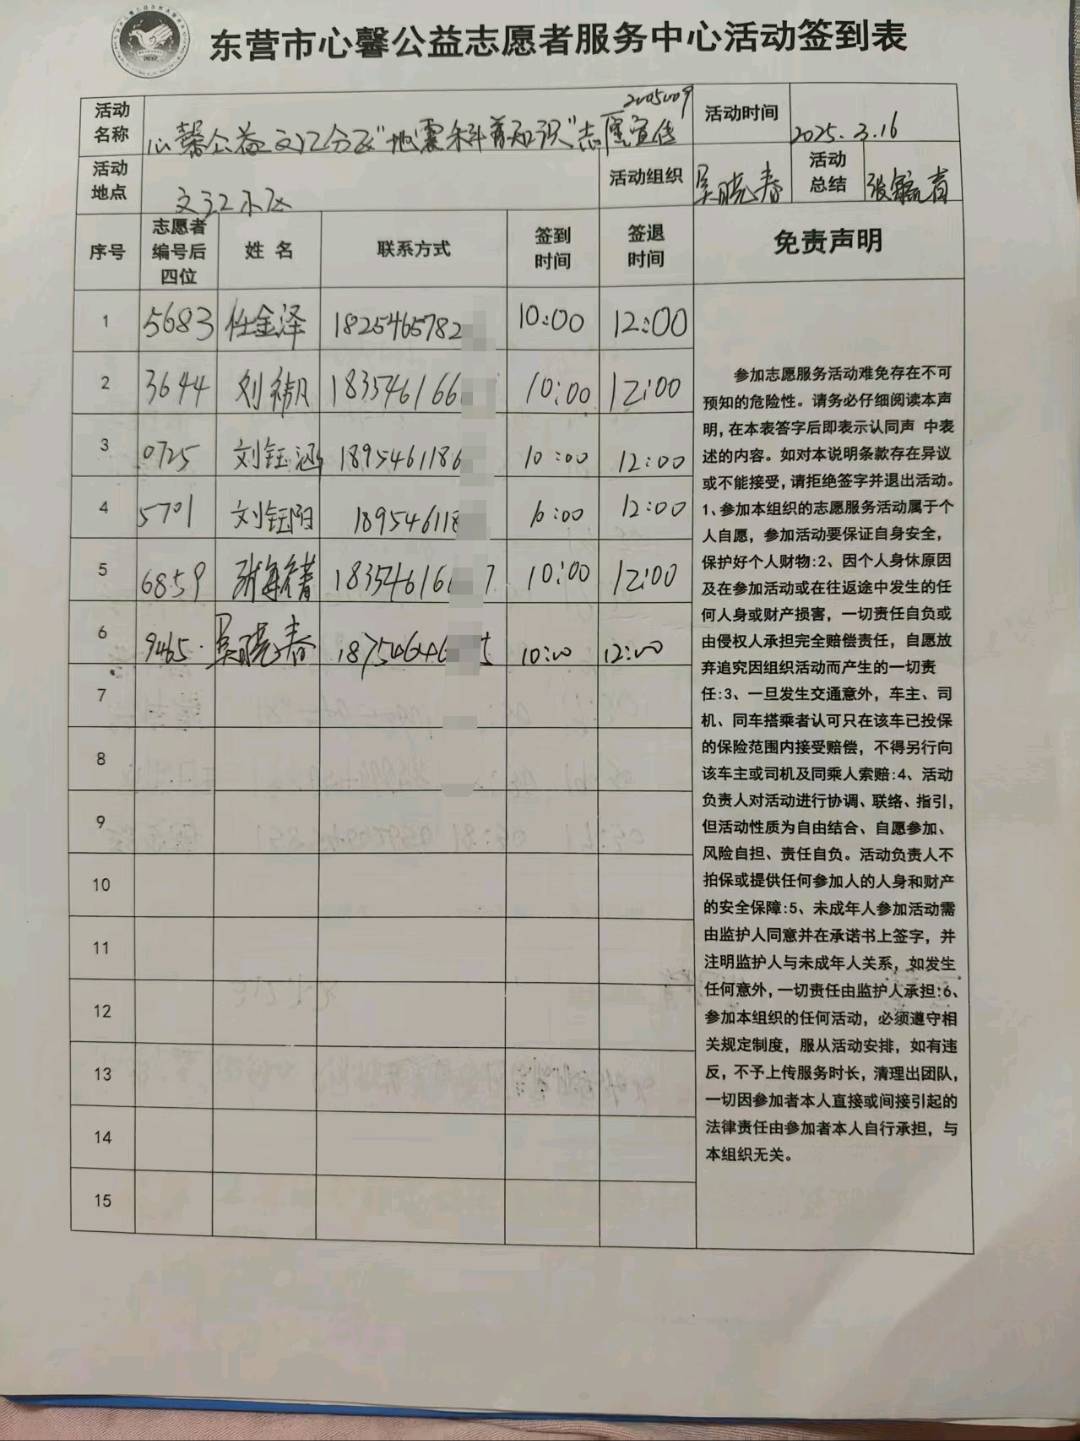 东营市心馨公益志愿者服务中心活动签到表
2005009
活动名称 心馨公益文汇分队"地震科普知识"志愿宣传 活动时间 2025.3.16
活动地点 活动组织 吴晓春 活动总结
序号 志愿者编号后四位 姓名 联系方式 签到时间 签退时间 免责声明
1 5683 任金泽 1825465782 10:00 12:00
2 3644 刘 183546166 10:00 12:00
3 0725 刘钰涵 1895461186 10:00 12:00
4 5701 刘钰阳 189546118 10:00 12:00
5 6859 18354616 7 10:00 12:00
6 9465 吴晓春 187546446 5 10:00 12:00
7
8
9
10
11
12
13
14
15
参加志愿服务活动难免存在不可
预知的危险性。请务必仔细阅读本声
明,在本表答字后即表示认同声 中表
述的内容。如对本说明条款存在异议
或不能接受,请拒绝签字并退出活动。
1、参加本组织的志愿服务活动属于个
人自愿，参加活动要保证自身安全，
保护好个人财物:2、因个人身休原因
及在参加活动或在往返途中发生的任
何人身或财产损害，一切责任自负或
由侵权人承担完全赔偿责任，自愿放
弃追究因组织活动而产生的一切责
任:3、一旦发生交通意外，车主、司
机、同车搭乘者认可只在该车已投保
的保险范围内接受赔偿，不得另行向
该车主或司机及同乘人索赔:4、活动
负责人对活动进行协调、联络、指引，
但活动性质为自由结合、自愿参加、
风险自担、责任自负。活动负责人不
拍保或提供任何参加人的人身和财产
的安全保障:5、未成年人参加活动需
由监护人同意并在承诺书上签字，并
注明监护人与未成年人关系，如发生
任何意外,一切责任由监护人承担:6、
参加本组织的任何活动，必须遵守相
关规定制度，服从活动安排，如有违
反，不予上传服务时长，清理出团队，
一切因参加者本人直接或间接引起的
法律责任由参加者本人自行承担，与
本组织无关。